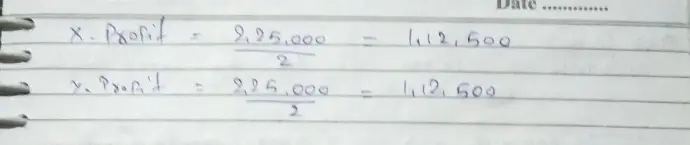 Date .............
X. Profit = 2,25,000 / 2 = 1,12,500
Y. Profit = 2,25,000 / 2 = 1,12,500